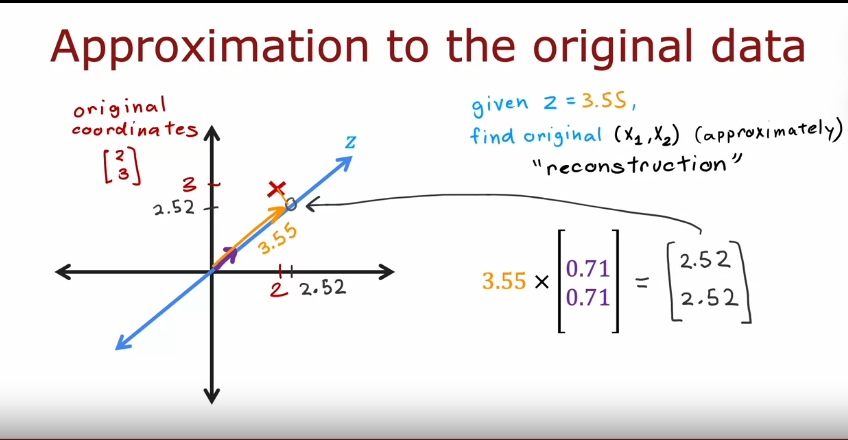 Approximation to the original data
original
coordinates
[2
3]
given z = 3.55,
find original (x1, x2) (approximately)
"reconstruction"
z
3
2.52
3.55
2
2.52
3.55 × [0.71
0.71] = [2.52
2.52]